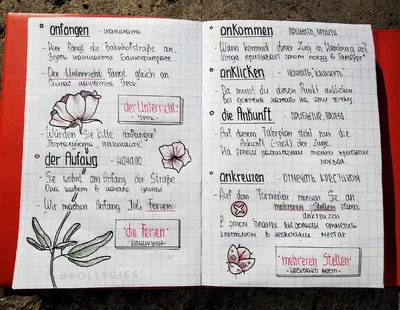 anfangen - начинать
- Hier fängt die Bahnhofstraße an.
Здесь начинается Банхофштрассе
- Der Unterricht fängt gleich an.
Сейчас начнётся урок
der Unterricht -
урок
- Würden Sie bitte anfangen!
Пожалуйста, начинайте!
der Anfang - начало
- Sie wohnt am Anfang der Straße
Она живёт в начале улицы
- Wir machen Anfang Juli Ferien
die Ferien -
каникулы
#POLLYGIES
ankommen - прибывать, прийти
- Wann kommt dieser Zug in Hamburg an?
Когда прибывает этот поезд в Гамбург?
anklicken - нажать, "кликнуть"
- Da musst du diesen Punkt anklicken
Ты должен нажать на эту точку
die Ankunft - прибытие
- Auf diesem Fahrplan steht nur die
Ankunft der Züge.
На этом расписании только прибытие
поезда
ankreuzen - отмечать крестиком
- Auf dem Formular müssen Sie an
mehreren Stellen etwas
ankreuzen
В этом бланке вы должны отметить
крестиком в нескольких местах
mehreren Stellen -
несколько мест